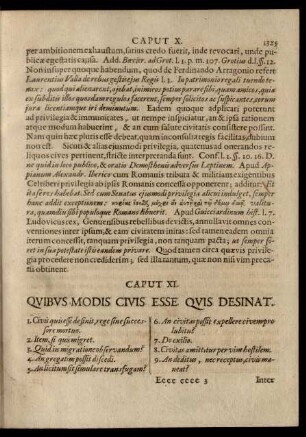 CAPUT X.
1525
per ambitionem exhaustum, satius credo fuerit, inde revocari, unde publicæ egestatis causa. Add. Bœcler. ad Grot. l. 3. p. m. 107. Grotius d. l. §. 12.
Non insuper quoque habendum, quod de Ferdinando Arragonio refert
Laurentius Valla de rebus gestis ejus Regis l. 3. In patrimonio regali tuende
mox: quod qui alienarent, ajebat, inimicos potius parare sibi, quam amicos, quia
ex subditis illis quosdam regulos facerent, semper solicitos ac suspicantes, eorum
jura licentiamque iri deminutum. Eadem quoque adplicari poterunt
ad privilegia & immunitates, ut nempe inspiciatur, an & in ipsis
erarque modum habuerint, & an cum salute civitatis consistere possint.
Nam quin hæc plurisesse debeat, quam inconsulta regis facilitas, dubium
non est. Sicuti & alias ejusmodi privilegia, quatenus ad onerandos reliquos cives pertinent, stricte interpretanda sunt. Conf. l. 1. §. 10. 16. D.
ne quid in loco publico, & oratio Demosthenis adversus Leptinem. Apud Appianum Alexandr. Iberico cum Romanis tributa & militiam exigentibus
Celtiberi privilegia ab ipsis Romanis concessa opponerent, additur:
Senatus ejusmodi privilegia alicui indulget, semper
hunc addit exceptionem:
quamdiu sibi populoque Romano libuerit. Apud Guicciardinum hist. l. 7.
Ludovicus rex, Genuensibus rebellibus devictis, antuallavit omnes conventiones inter ipsum, & eam civitatem contractas: iisdem tamen mox iterum concessit, tanquam privilegia, non tanquam pacta; ut semper foret in sua potestate isti ea eidem privare. Quod tamen circa quævis privilegia procedere haud quidquam; sed illa tantum, quæ non nisi vim precarii obtinent.
CAPUT XI.
QVIBVS MODIS CIVIS ESSE QVIS DESINAT.
1. Civis quis esse desinit, rege sine successore mortuo.
2. Item, si quis migret.
3. Quid in migratione observandum?
4. An gregatim possit discedi.
5. An licitum sit simulare transfugam?
6. An civitas possit expellere civem pro lubitu?
7. De exilio.
8. Civitas amittitur per vim hostilem.
9. An deditus, nec receptus, civis maneat?
Eccc cccc 3
Inter